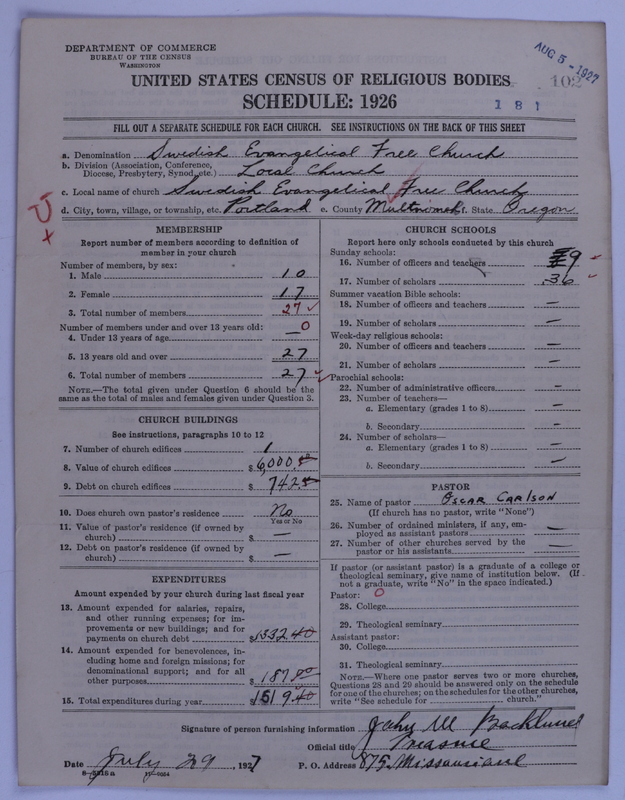 DEPARTMENT OF COMMERCE
BUREAU OF THE CENSUS
WASHINGTON
AUG 5 - 1927
102
UNITED STATES CENSUS OF RELIGIOUS BODIES
SCHEDULE: 1926
1 8 1
FILL OUT A SEPARATE SCHEDULE FOR EACH CHURCH. SEE INSTRUCTIONS ON THE BACK OF THIS SHEET
a. Denomination Swedish Evangelical Free Church
b. Division (Association, Conference, Diocese, Presbytery, Synod, etc.) Local Church
c. Local name of church Swedish Evangelical Free Church
d. City, town, village, or township, etc. Portland e. County Multnomah f. State Oregon
MEMBERSHIP
Report number of members according to definition of
member in your church
Number of members, by sex:
1. Male 10
2. Female 17
3. Total number of members 27
Number of members under and over 13 years old:
4. Under 13 years of age — 0
5. 13 years old and over 27
6. Total number of members 27
NOTE.—The total given under Question 6 should be
same as the total of males and females given under Question 3.
CHURCH BUILDINGS
See instructions, paragraphs 10 to 12
7. Number of church edifices 1
8. Value of church edifices $6,000.00
9. Debt on church edifices $ 742.00
10. Does church own pastor's residence? No
Yes or No
11. Value of pastor's residence (if owned by
church) $ —
12. Debt on pastor's residence (if owned by
church) $ —
EXPENDITURES
Amount expended by your church during last fiscal year
13. Amount expended for salaries, repairs,
and other running expenses; for im-
provements or new buildings; and for
payments on church debt $1332.40
14. Amount expended for benevolences, in-
cluding home and foreign missions; for
denominational support; and for all
other purposes $ 187.00
15. Total expenditures during year $1519.40
CHURCH SCHOOLS
Report here only schools conducted by this church
Sunday schools:
16. Number of officers and teachers 9
17. Number of scholars 36
Summer vacation Bible schools:
18. Number of officers and teachers —
19. Number of scholars —
Week-day religious schools:
20. Number of officers and teachers —
21. Number of scholars —
Parochial schools:
22. Number of administrative officers —
23. Number of teachers—
a. Elementary (grades 1 to 8) —
b. Secondary —
24. Number of scholars—
a. Elementary (grades 1 to 8) —
b. Secondary —
PASTOR
25. Name of pastor Oscar Carlson
(If church has no pastor, write "None")
26. Number of ordained ministers, if any, em-
ployed as assistant pastors —
27. Number of other churches served by the
pastor or his assistants —
If pastor (or assistant pastor) is a graduate of a college or
theological seminary, give name of institution below. (If
not a graduate, write "No" in the space indicated.)
Pastor: 0
28. College
29. Theological seminary
Assistant pastor:
30. College
31. Theological seminary
NOTE.—Where one pastor serves two or more churches,
Questions 28 and 29 should be answered only on the schedule
for one of the churches; on the schedules for the other churches,
write "See schedule for church."
Signature of person furnishing information John M Backlund
Official title
Date July 29, 1927 P. O. Address 875
8—5216a